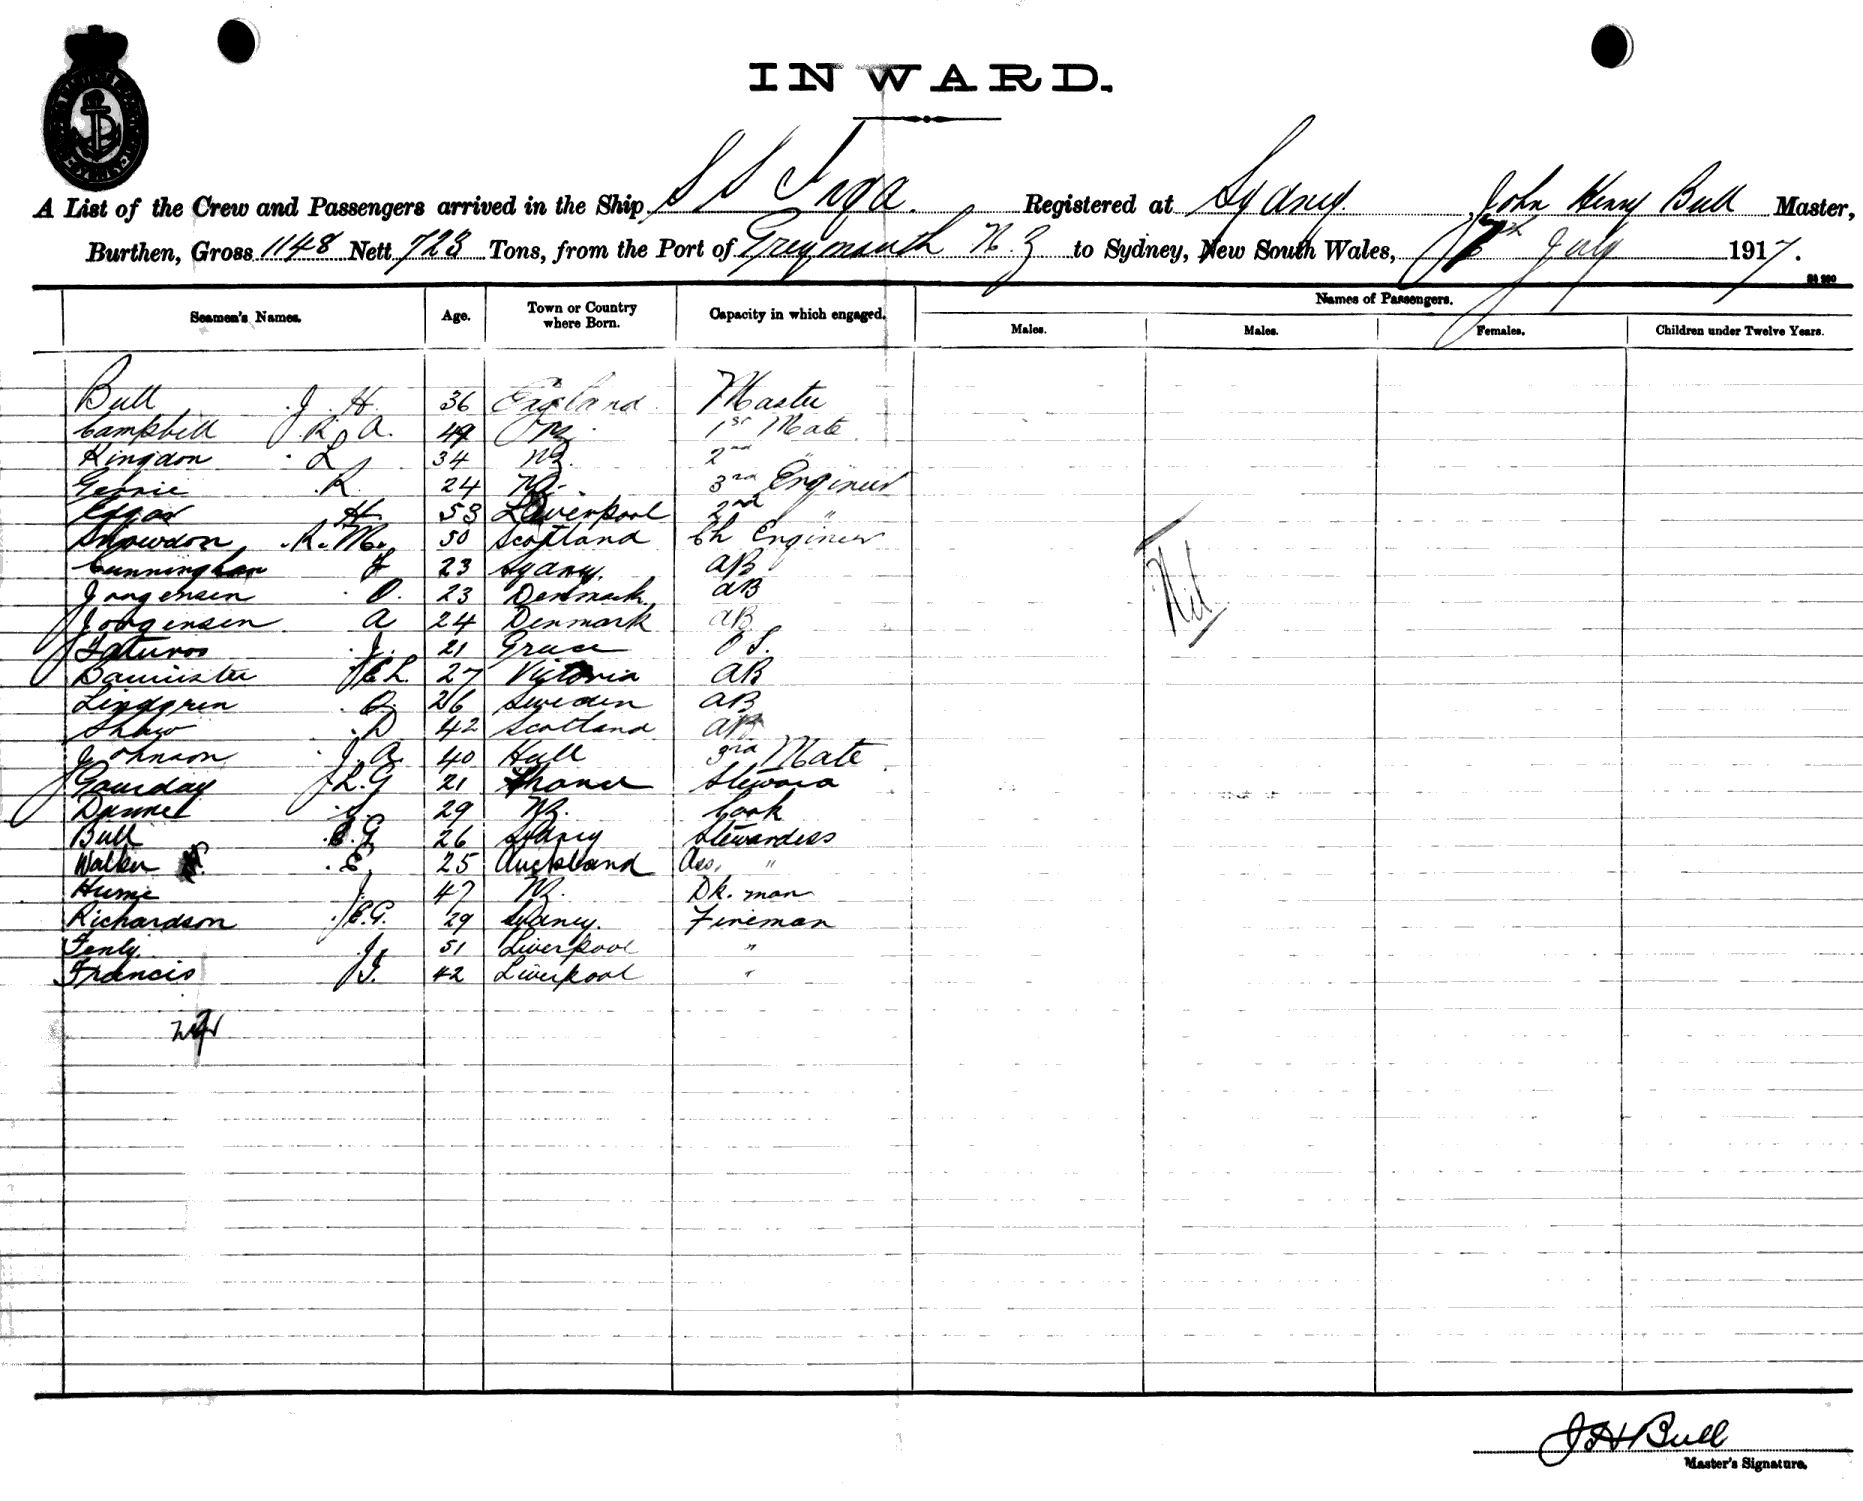 INWARD.
A List of the Crew and Passengers arrived in the Ship S S Inga. Registered at Sydney. John Henry Bull Master,
Burthen, Gross 1148 Nett 723 Tons, from the Port of Greymouth N.Z to Sydney, New South Wales, July 1917.
Seamen's Names. Age. Town or Country where Born. Capacity in which engaged. Names of Passengers.
Males. Males. Females. Children under Twelve Years.
Bull J. H. 36 England Master
Campbell R. A. NZ. 1st Mate
Kingdon L 34 NZ. 2nd "
R. 24 NZ. 3rd Engineer
Edgar H. 53 Liverpool 2nd "
Snowdon R. M. 50 Scotland Ch Engineer
Cunningham J 23 Sydney. AB
Jorgensen O. 23 Denmark AB
Jorgensen A 24 Denmark AB
J. 21 Greece O S.
Bannister C L. 27 Victoria AB
Lindgren O. 26 Sweden AB
Shaw D 42 Scotland AB
Johnson J. A. 40 Hull 3rd Mate
L. G 21 Steward
29 NZ. Cook
Bull E. G 26 Sydney Stewardess
Walker E. 25 Auckland Ass. "
Hume J. 47 NZ. Dk. man
Richardson C. G. 29 Sydney. Fireman
J. 51 Liverpool "
Francis J. 42 Liverpool "
Nil
J H Bull
Master's Signature.